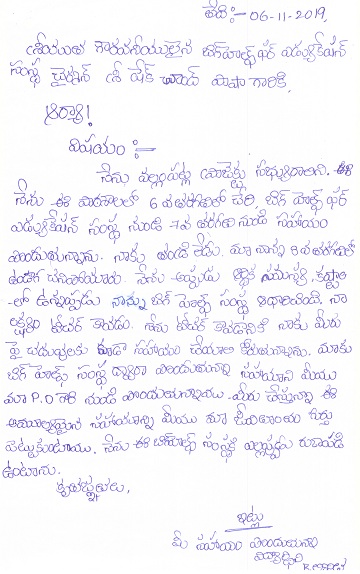 తేది:- 06-11-2019,
శ్రీయుత గౌరవనీయులైన బిగ్ హెల్ప్ ఫర్ ఎడ్యుకేషన్
సంస్థ చైర్మన్ శ్రీ షేక్ చాంద్ పాషా గారికి,
ఆర్యా!
విషయం :-
నేను విద్యార్థిని. ఈ
నేను ఈ పాఠశాలలో 6 వ తరగతిలో చేరి, బిగ్ హెల్ప్ ఫర్
ఎడ్యుకేషన్ సంస్థ నుండి 7వ తరగతి నుండి సహాయం
పొందుతున్నాను. నాకు తండ్రి లేడు. మా నాన్న 8వ తరగతిలో
ఉండగా చనిపోయారు. నేను అప్పుడు ఆర్థిక సమస్య, కష్టాల
-లో ఉన్నప్పుడు నాన్ను బిగ్ హెల్ప్ సంస్థ ఆదరించింది. నా
లక్ష్యం టీచర్ కావడం. నేను టీచర్ కావడానికి నాకు మీరు
పై చదువులకు కూడా సహాయం చేయాలి కోరుతున్నాను. మాకు
బిగ్ హెల్ప్ సంస్థ ద్వారా పొందుతున్న సహాయాన్ని మేము
మా P.D గారి నుండి పొందుతున్నాము. మీరు చేస్తున్న ఈ
అమూల్యమైన సహాయాన్ని మేము మా జీవితాంతం గుర్తు
పెట్టుకుంటాము. నేను ఈ బిగ్ హెల్ప్ సంస్థకి ఎల్లప్పుడు రుణపడి
ఉంటాను.
కృతజ్ఞతలు,
ఇట్లు
మీ సహాయం పొందుతున్న
విద్యార్థిని